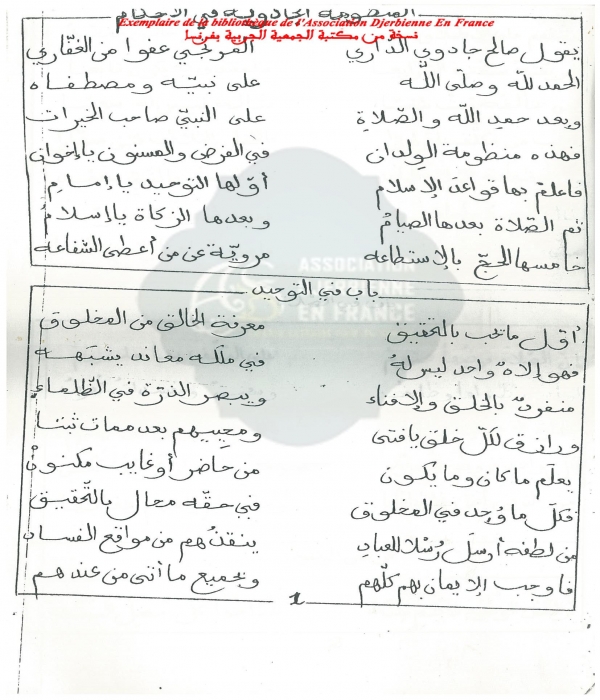 المنظومة الجادوية في الاحكام
Exemplaire de la bibliothèque de l'Association Djerbienne En France
نسخة من مكتبة الجمعية الجربية بفرنسا
يقول صالح جادوي الداري الفرجي عفوا من الغفّاري
الحمد للّه وصلّى اللّه على نبيّه ومصطفاه
وبعد حمد اللّه والصّلاة على النبيّ صاحب الخيرات
فهذه منظومة الولدان في الفرض والمسنون بإخوان
فاعلم بها قواعد الإسلام أوّلها التوحيد يا إمام
ثم الصّلاة بعدها الصيامُ وبعدها الزكاة يا إسلامُ
خامسها الحجّ بالإستطاعه مرويّة عن من أعطى الشفاعه
باب في التوحيد
ASSOCIATION
DJERBIENNE
EN FRANCE
أوّل ما تجب بالتحقيق معرفة الخالق من المخلوق
فهو إلاهٌ واحد ليس لهُ في ملكه معاند يشبهه
منفردٌ بالخلق والإفناء ويبصر الذرّة في الظّلماء
ورازق لكلّ خلق يا فتى ومحييهم بعد ممات ثبتا
يعلم ما كان وما يكون من حاضر أو غايب مكنونْ
فكلّ ما وُجد في المخلوق في حقّه محال بالتّحقيق
من لطفه أرسل رُسْلا للعباد ينقذُهم من مواقع الفساد
فاوجب الإيمان بهم كلّهم وبجميع ما أتى من عندهم
1